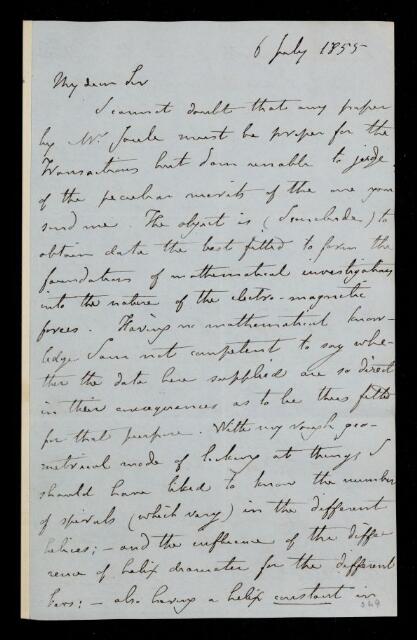 6 July 1855
My dear Sir
I cannot doubt that any paper
by Mr. Joule must be proper for the
Transactions but I am unable to judge
of the peculiar merits of the one you
send me. The object is (I conclude) to
obtain data the best fitted to form the
foundation of mathematical investigations
into the nature of the electro-magnetic
forces. Having no mathematical know-
ledge I am not competent to say whe-
ther the data here supplied are so direct
in their consequences as to be thus fitted
for that purpose. With my rough geo-
metrical mode of looking at things I
should have liked to know the number
of spirals (which vary) in the different
helices; - and the influence of the diffe-
rence of helix diameter for the different
bars; - also having a helix constant in